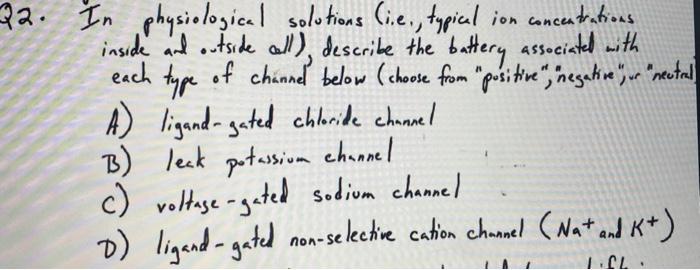 Q2. In physiological solutions (i.e., typical ion concentrations
inside and outside cell), describe the battery associated with
each type of channel below (choose from "positive", "negative", or "neutral
A) ligand-gated chloride channel
B) leak potassium channel
C) voltage-gated sodium channel
D) ligand-gated non-selective cation channel (Na+ and K+)